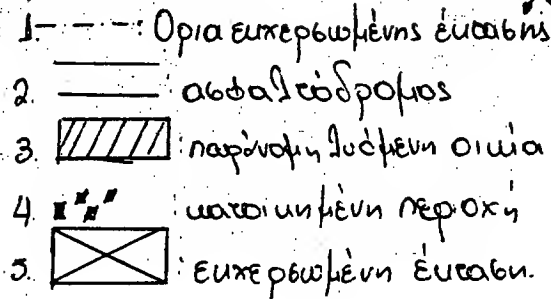 1. : Ορια ευχερσωμένης έκτασης
2. : ασφαλτόδρομος
3. : παράνομη λυόμενη οικία
4. : κατοικημένη περιοχή
5. : ευχερσωμένη έκταση.